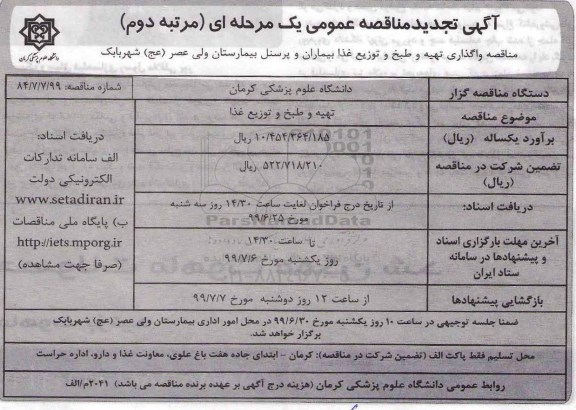 آگهی تجدیدمناقصه عمومی یک مرحله ای (مرتبه دوم)
مناقصه واگذاری تهیه و طبخ و توزیع غذا بیماران و پرسنل بیمارستان ولی عصر (عج) شهربابک
دستگاه مناقصه گزار
دانشگاه علوم پزشکی کرمان
شماره مناقصه: ۸۴/۷/۷/۹۹
موضوع مناقصه
تهیه و طبخ و توزیع غذا
برآورد یکساله (ریال)
۱۰/۴۵۴/۳۶۴/۱۸۵ ریال
تضمین شرکت در مناقصه
(ریال)
۵۲۲/۷۱۸/۲۱۰ ریال
دریافت اسناد:
از تاریخ درج فراخوان لغایت ساعت ۱۴/۳۰ روز سه شنبه
مورخ ۹۹/۶/۲۵
آخرین مهلت بارگزاری اسناد
و پیشنهادها در سامانه
ستاد ایران
تا ساعت ۱۴/۳۰
روز یکشنبه مورخ ۹۹/۷/۶
بازگشایی پیشنهادها
از ساعت ۱۲ روز دوشنبه مورخ ۹۹/۷/۷
دریافت اسناد:
الف سامانه تدارکات
الکترونیکی دولت
www.setadiran.ir
ب) پایگاه ملی مناقصات
http://iets.mporg.ir
(صرفا جهت مشاهده)
ضمنا جلسه توجیهی در ساعت ۱۰ روز یکشنبه مورخ ۹۹/۶/۳۰ در محل امور اداری بیمارستان ولی عصر (عج) شهربابک
برگزار خواهد شد.
محل تسلیم فقط پاکت الف (تضمین شرکت در مناقصه): کرمان – ابتدای جاده هفت باغ علوی، معاونت غذا و دارو، اداره حراست
روابط عمومی دانشگاه علوم پزشکی کرمان (هزینه درج آگهی بر عهده برنده مناقصه می باشد) ۲۰۴۱م/الف